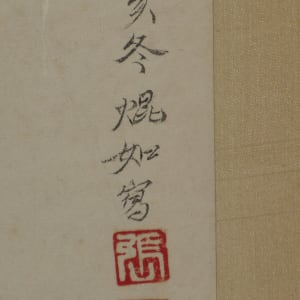 亥冬焜如寫
張